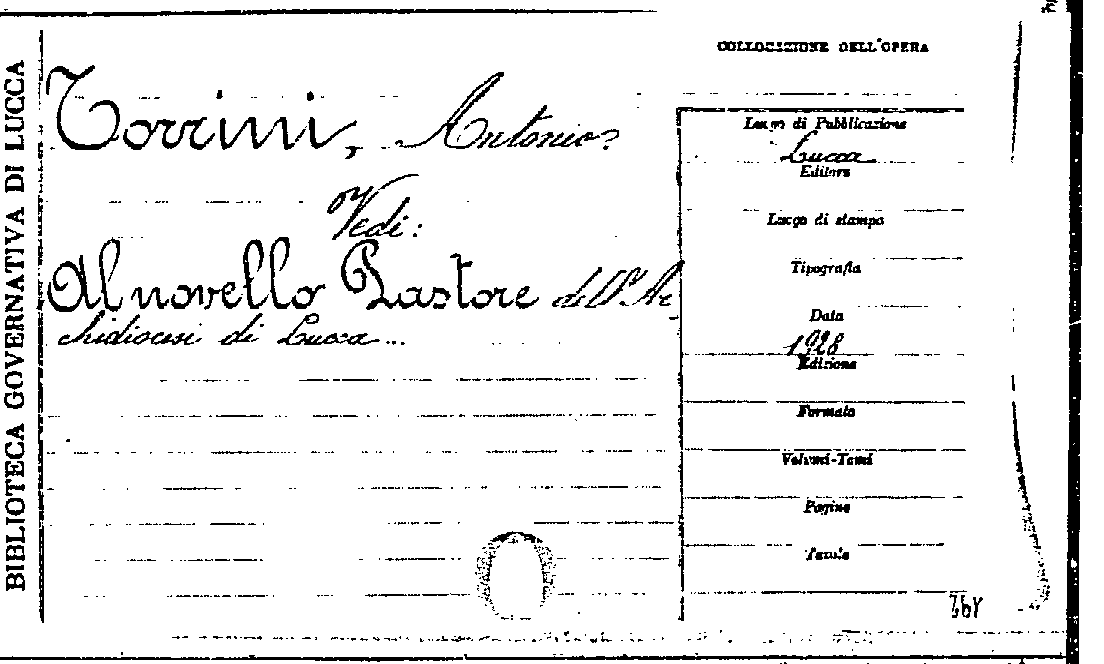 BIBLIOTECA GOVERNATIVA DI LUCCA
COLLOCAZIONE DELL'OPERA
Torrini, Antonio.
Vedi:
Al novello Pastore dell'Ar-
chidiocesi di Lucca...
Luogo di Pubblicazione
Lucca
Editore
Luogo di stampa
Tipografia
Data
1928
Edizione
Formato
Volumi-Tomi
Pagine
Tavole